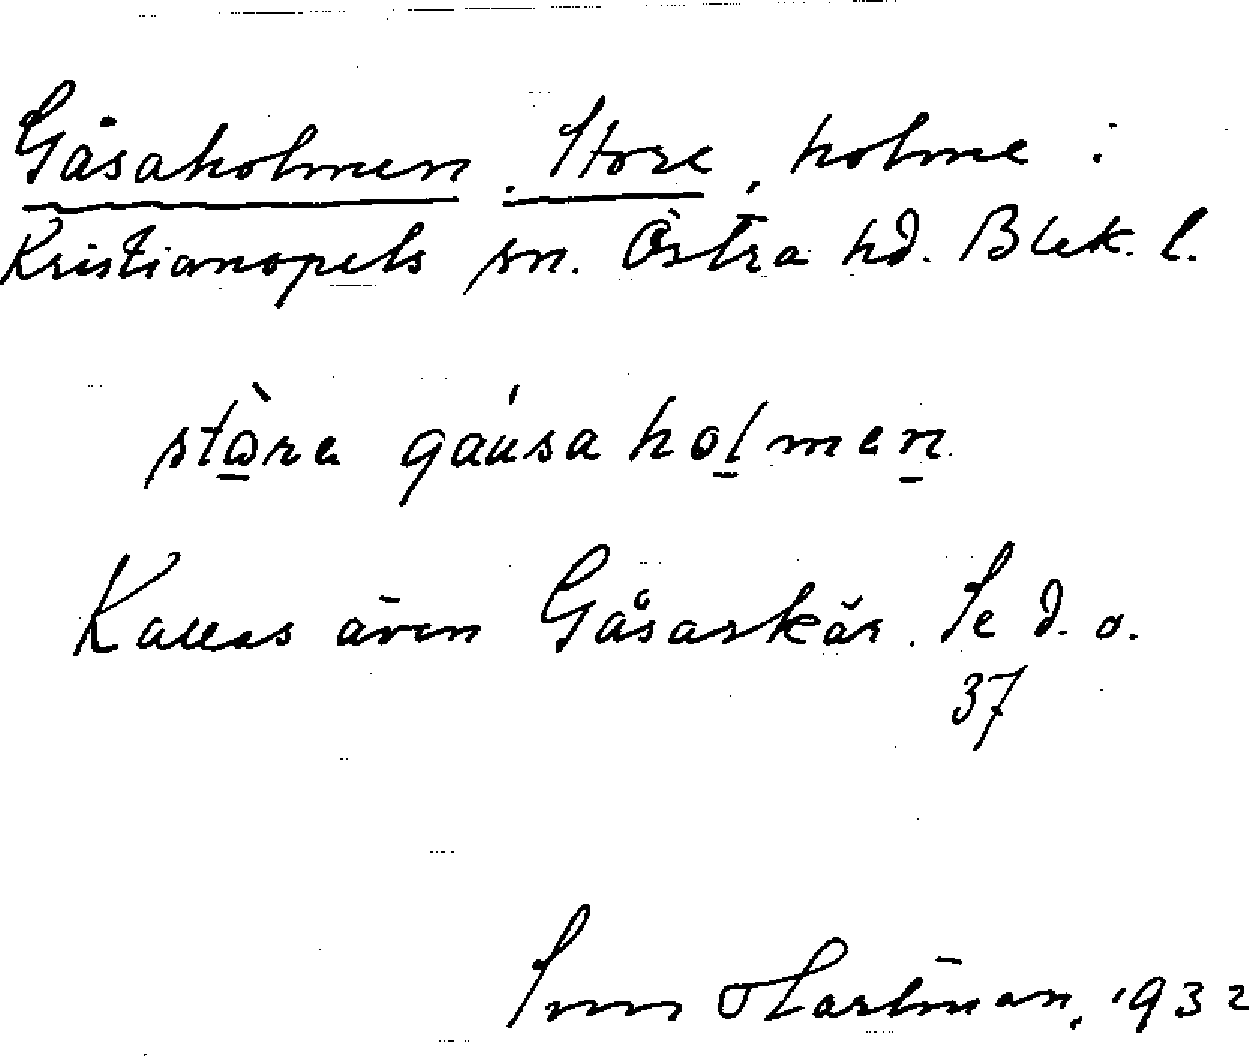 Gåsaholmen, Store, holme i
Kristianopels sn. Östra hd. Blek. l.
stòra gáusaholmen
Kallas även Gåsaskär. Se d. o.
37
Hartman, 1932